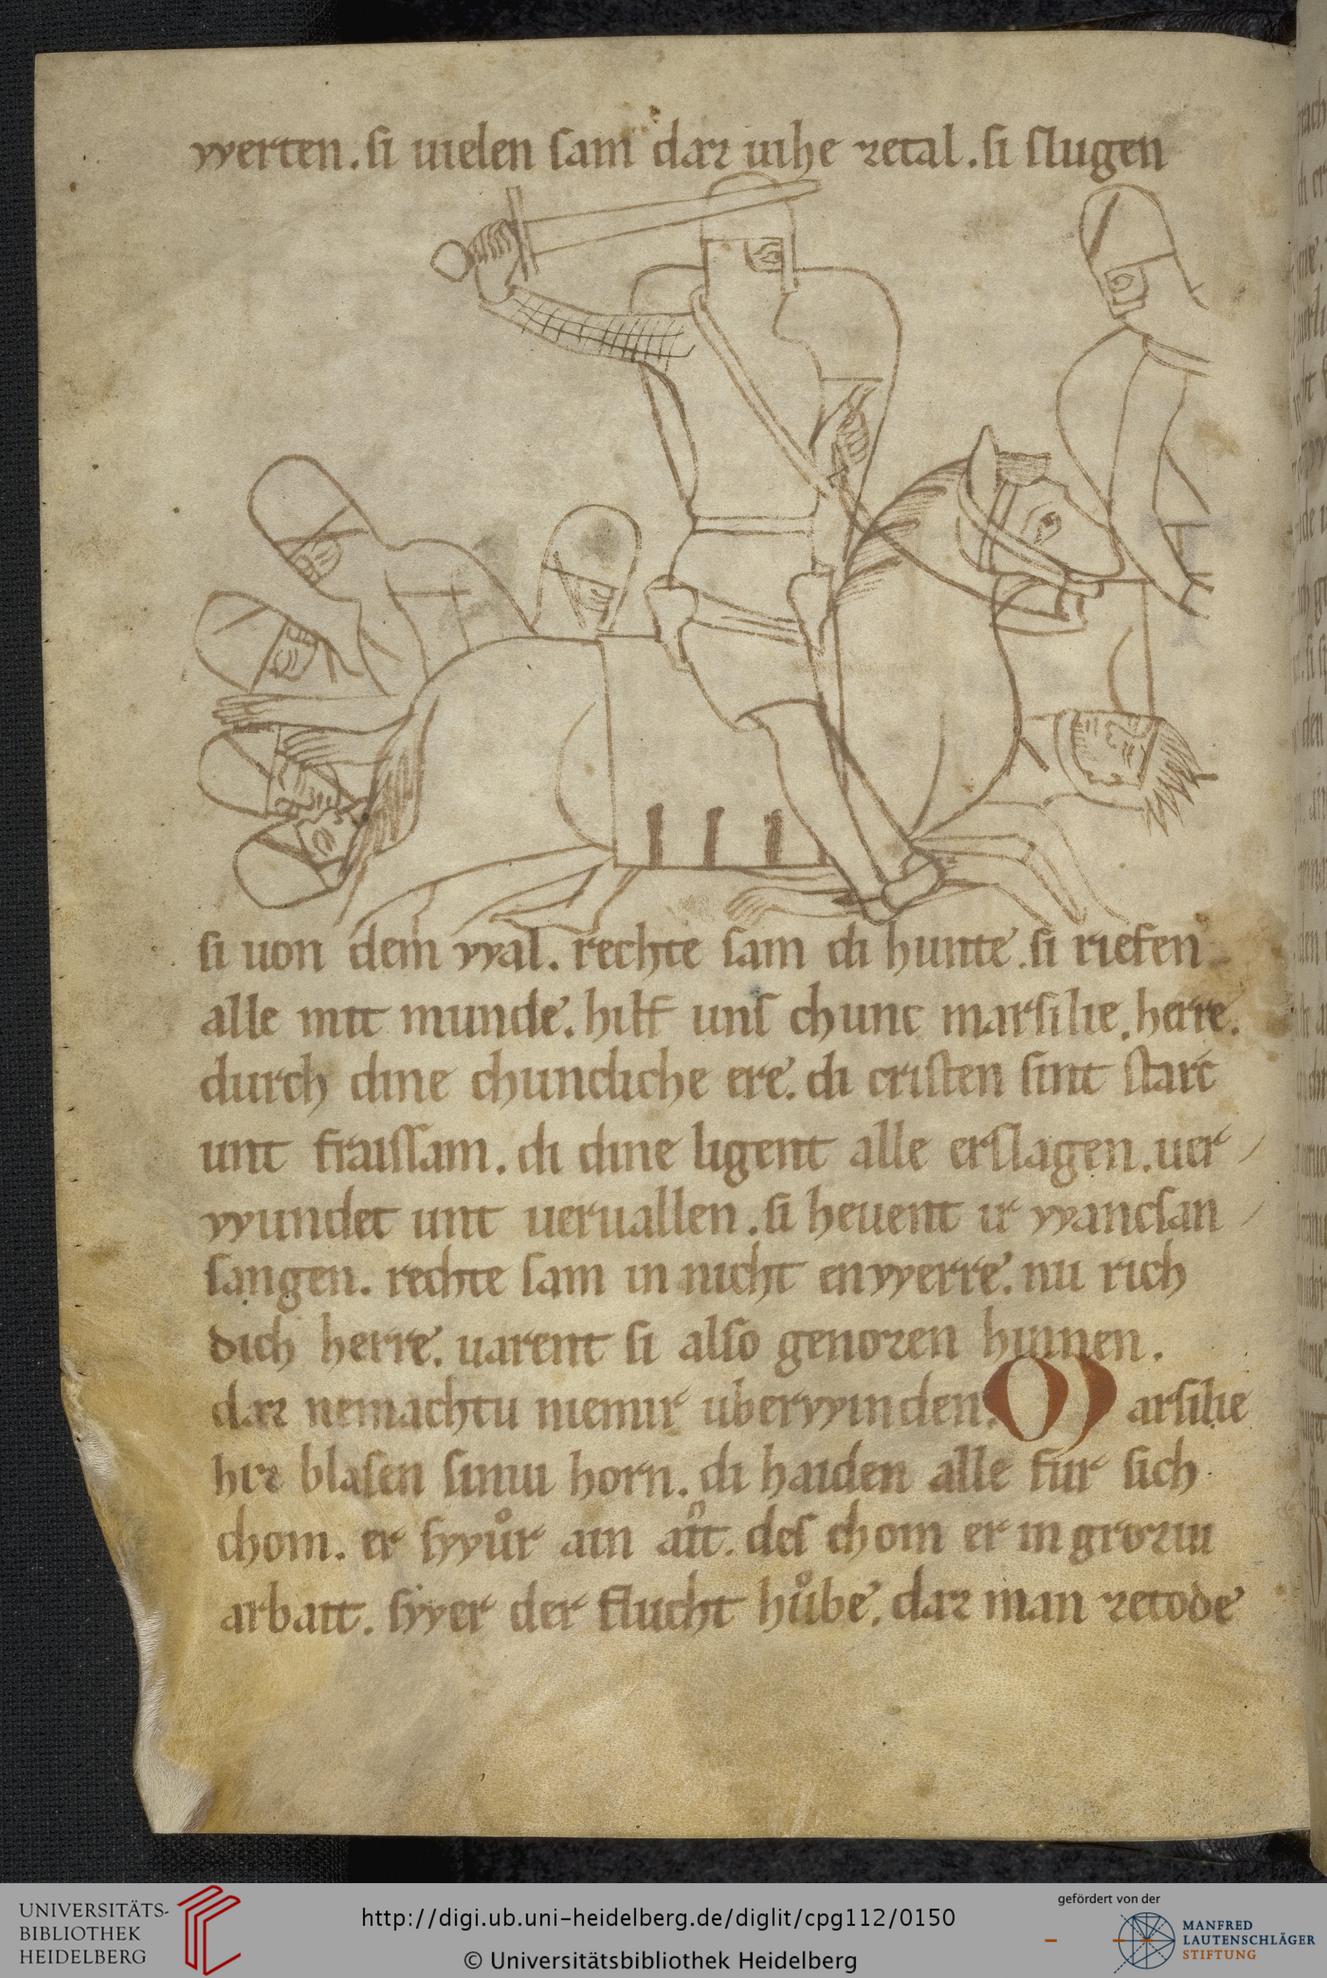 werten. si uielen sam daz uihe zetal. si slugen
si uon dem wal. rechte sam di hunte. si riefen
alle mit munde. hilf uns chunc marsilie. herre.
durch dine chundiche ere. di cristen sint starc
unt fraissam. di dine ligent alle erslagen. uer
wundet unt ueruallen. si heuent ir wancsan
sangen. rechte sam in nicht enwerre. nu rich
dich herre. uarent si also genozen hinnen.
daz nemachtu niemir uberwinden. Marsilie
hiz blasen siniu horn. di haiden alle fur sich
chom. er swůr ain ait. des chom er in groziu
arbait. swer der flucht hůbe. daz man zetode
UNIVERSITÄTS-
BIBLIOTHEK
HEIDELBERG
http://digi.ub.uni-heidelberg.de/diglit/cpg112/0150
© Universitätsbibliothek Heidelberg
gefördert von der
MANFRED
LAUTENSCHLÄGER
STIFTUNG